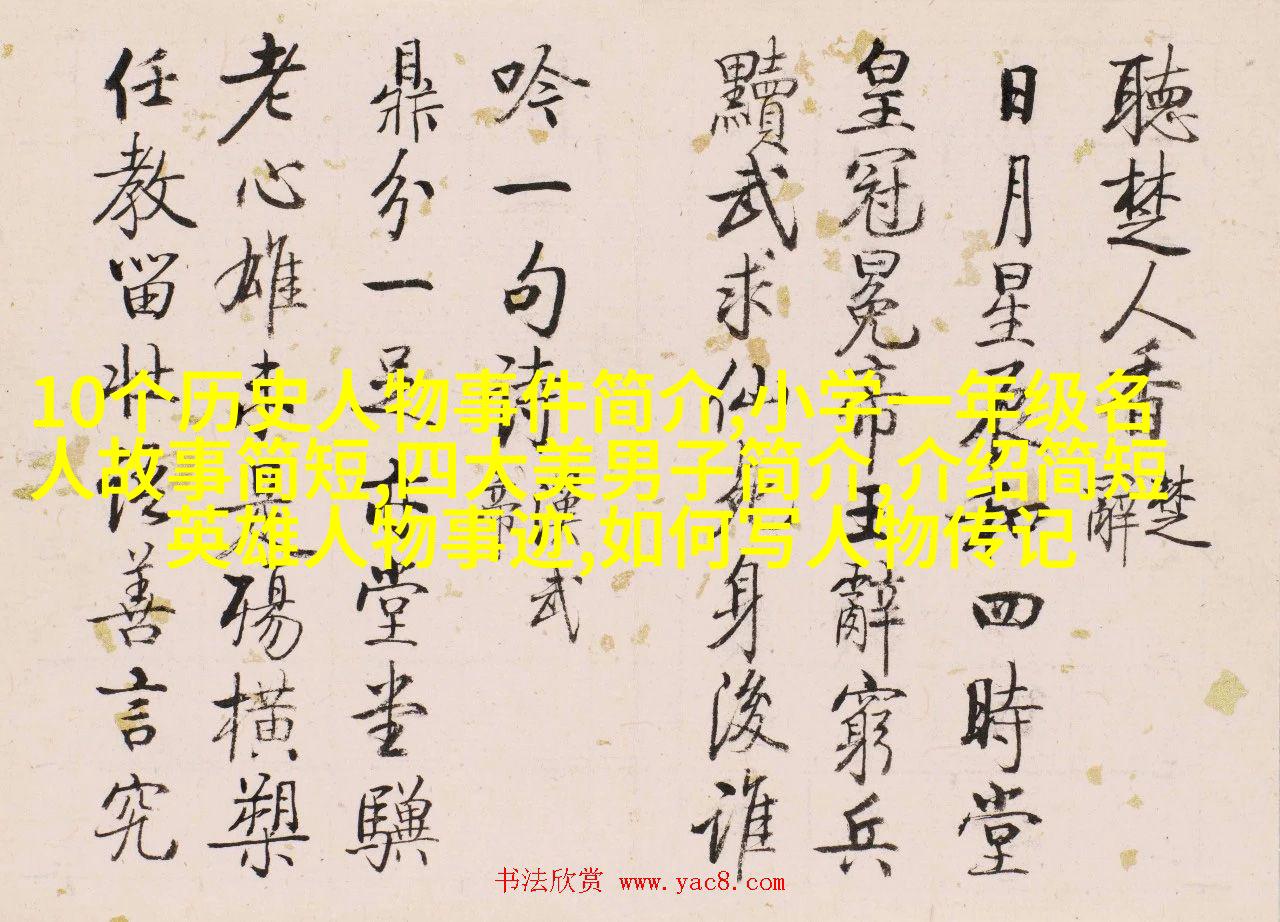 聽楚人香
楚辭
日月星辰和四時堂
皇冠冕帝王辭窮兵
黷武求仙身後誰
吟一句詩
漢武帝
鼎分一足亦堂堂驥
老心雄未是殤橫槊
任教留壯語善言究
10个历史人物事件简介,小学一年级名
人故事简短,四大美男子简介,介绍简短
英雄人物事迹,如何写人物传记
书法欣赏 www.yac8.com